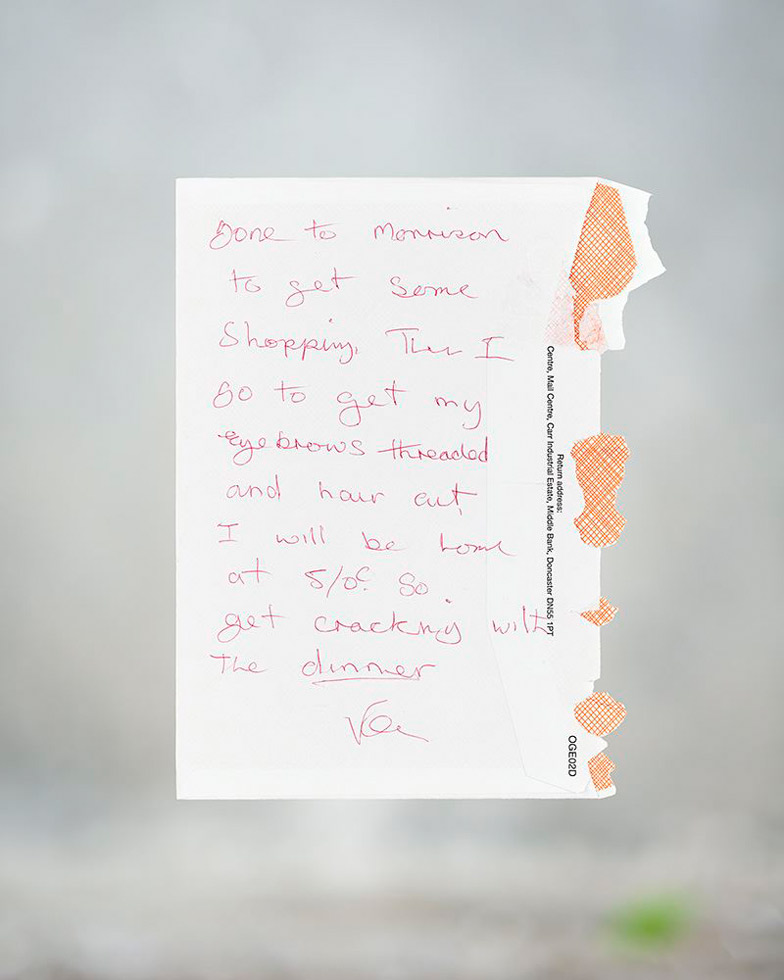 Gone to Morrison
to get some
Shopping, Then I
Go to get my
eyebrows threaded
and hair cut,
I will be home
at 5/0c. So
get cracking with
the dinner
Return address:
Centre, Mail Centre, Carr Industrial Estate, Middle Bank, Doncaster DN55 1PT
OGE02D